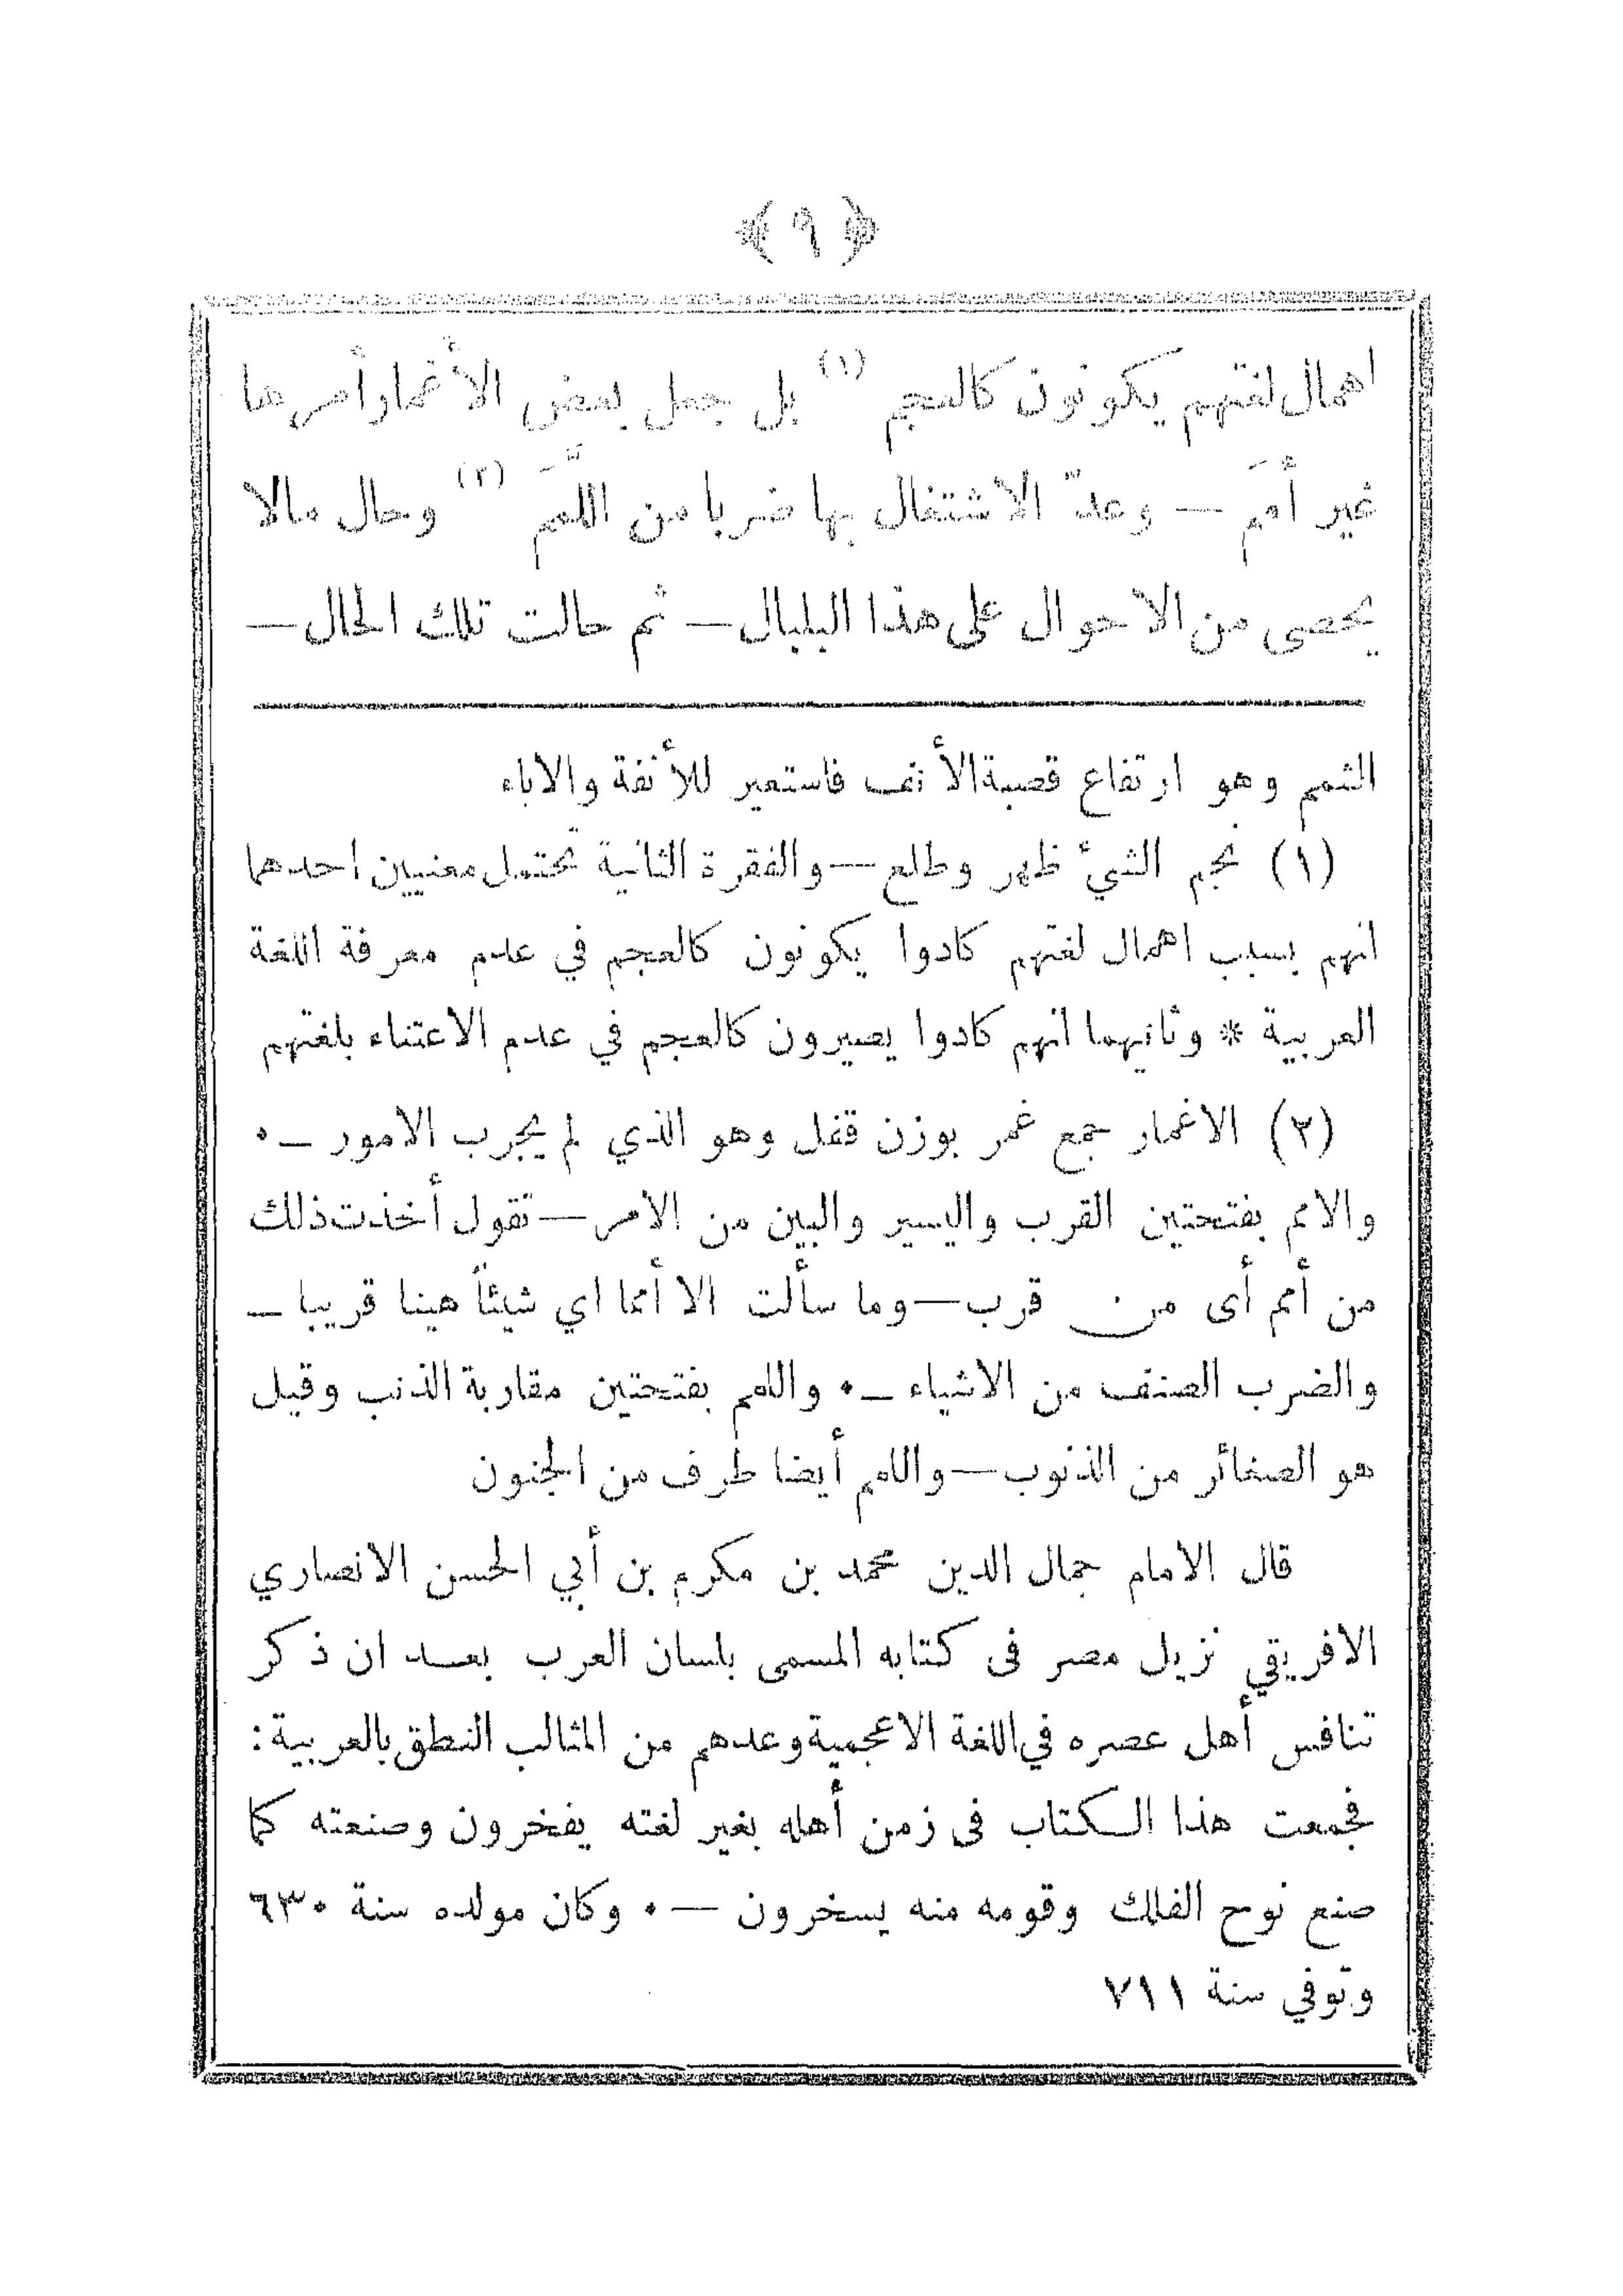 ﴿ ٩ ﴾
اهمال لغتهم يكونون كالعجم (١) بل جعل بعض الأغمار أمرها
غير أمَم — وعدّ الاشتغال بها ضربا من اللَّمَم (٢) وحال مالا
يحصى من الاحوال على هذا البلبال — ثم حالت تلك الحال —
الشمم وهو ارتفاع قصبة الأنف فاستعير للأنفة والاباء
(١) نجم الشيء ظهر وطلع — والفقرة الثانية تحتمل معنيين احدهما
انهم بسبب اهمال لغتهم كادوا يكونون كالعجم في عدم معرفة اللغة
العربية * وثانيهما انهم كادوا يصيرون كالعجم في عدم الاعتناء بلغتهم
(٢) الاغمار جمع غمر بوزن قفل وهو الذي لم يجرب الامور — ٠
والامم بفتحتين القرب واليسير والبين من الامر — تقول أخذت ذلك
من أمم أى من قرب — وما سألت الا أمما اي شيئاً هينا قريبا —
والضرب الصنف من الاشياء — ٠ واللمم بفتحتين مقاربة الذنب وقيل
هو الصغائر من الذنوب — واللمم أيضا طرف من الجنون
قال الامام جمال الدين محمد بن مكرم بن أبي الحسن الانصاري
الافريقي نزيل مصر فى كتابه المسمى بلسان العرب بعد ان ذكر
تنافس أهل عصره في اللغة الاعجمية وعدهم من المثالب النطق بالعربية :
فجمعت هذا الكتاب فى زمن أهله بغير لغته يفخرون وصنعته كما
صنع نوح الفلك وقومه منه يسخرون — ٠ وكان مولده سنة ٦٣٠
وتوفي سنة ٧١١